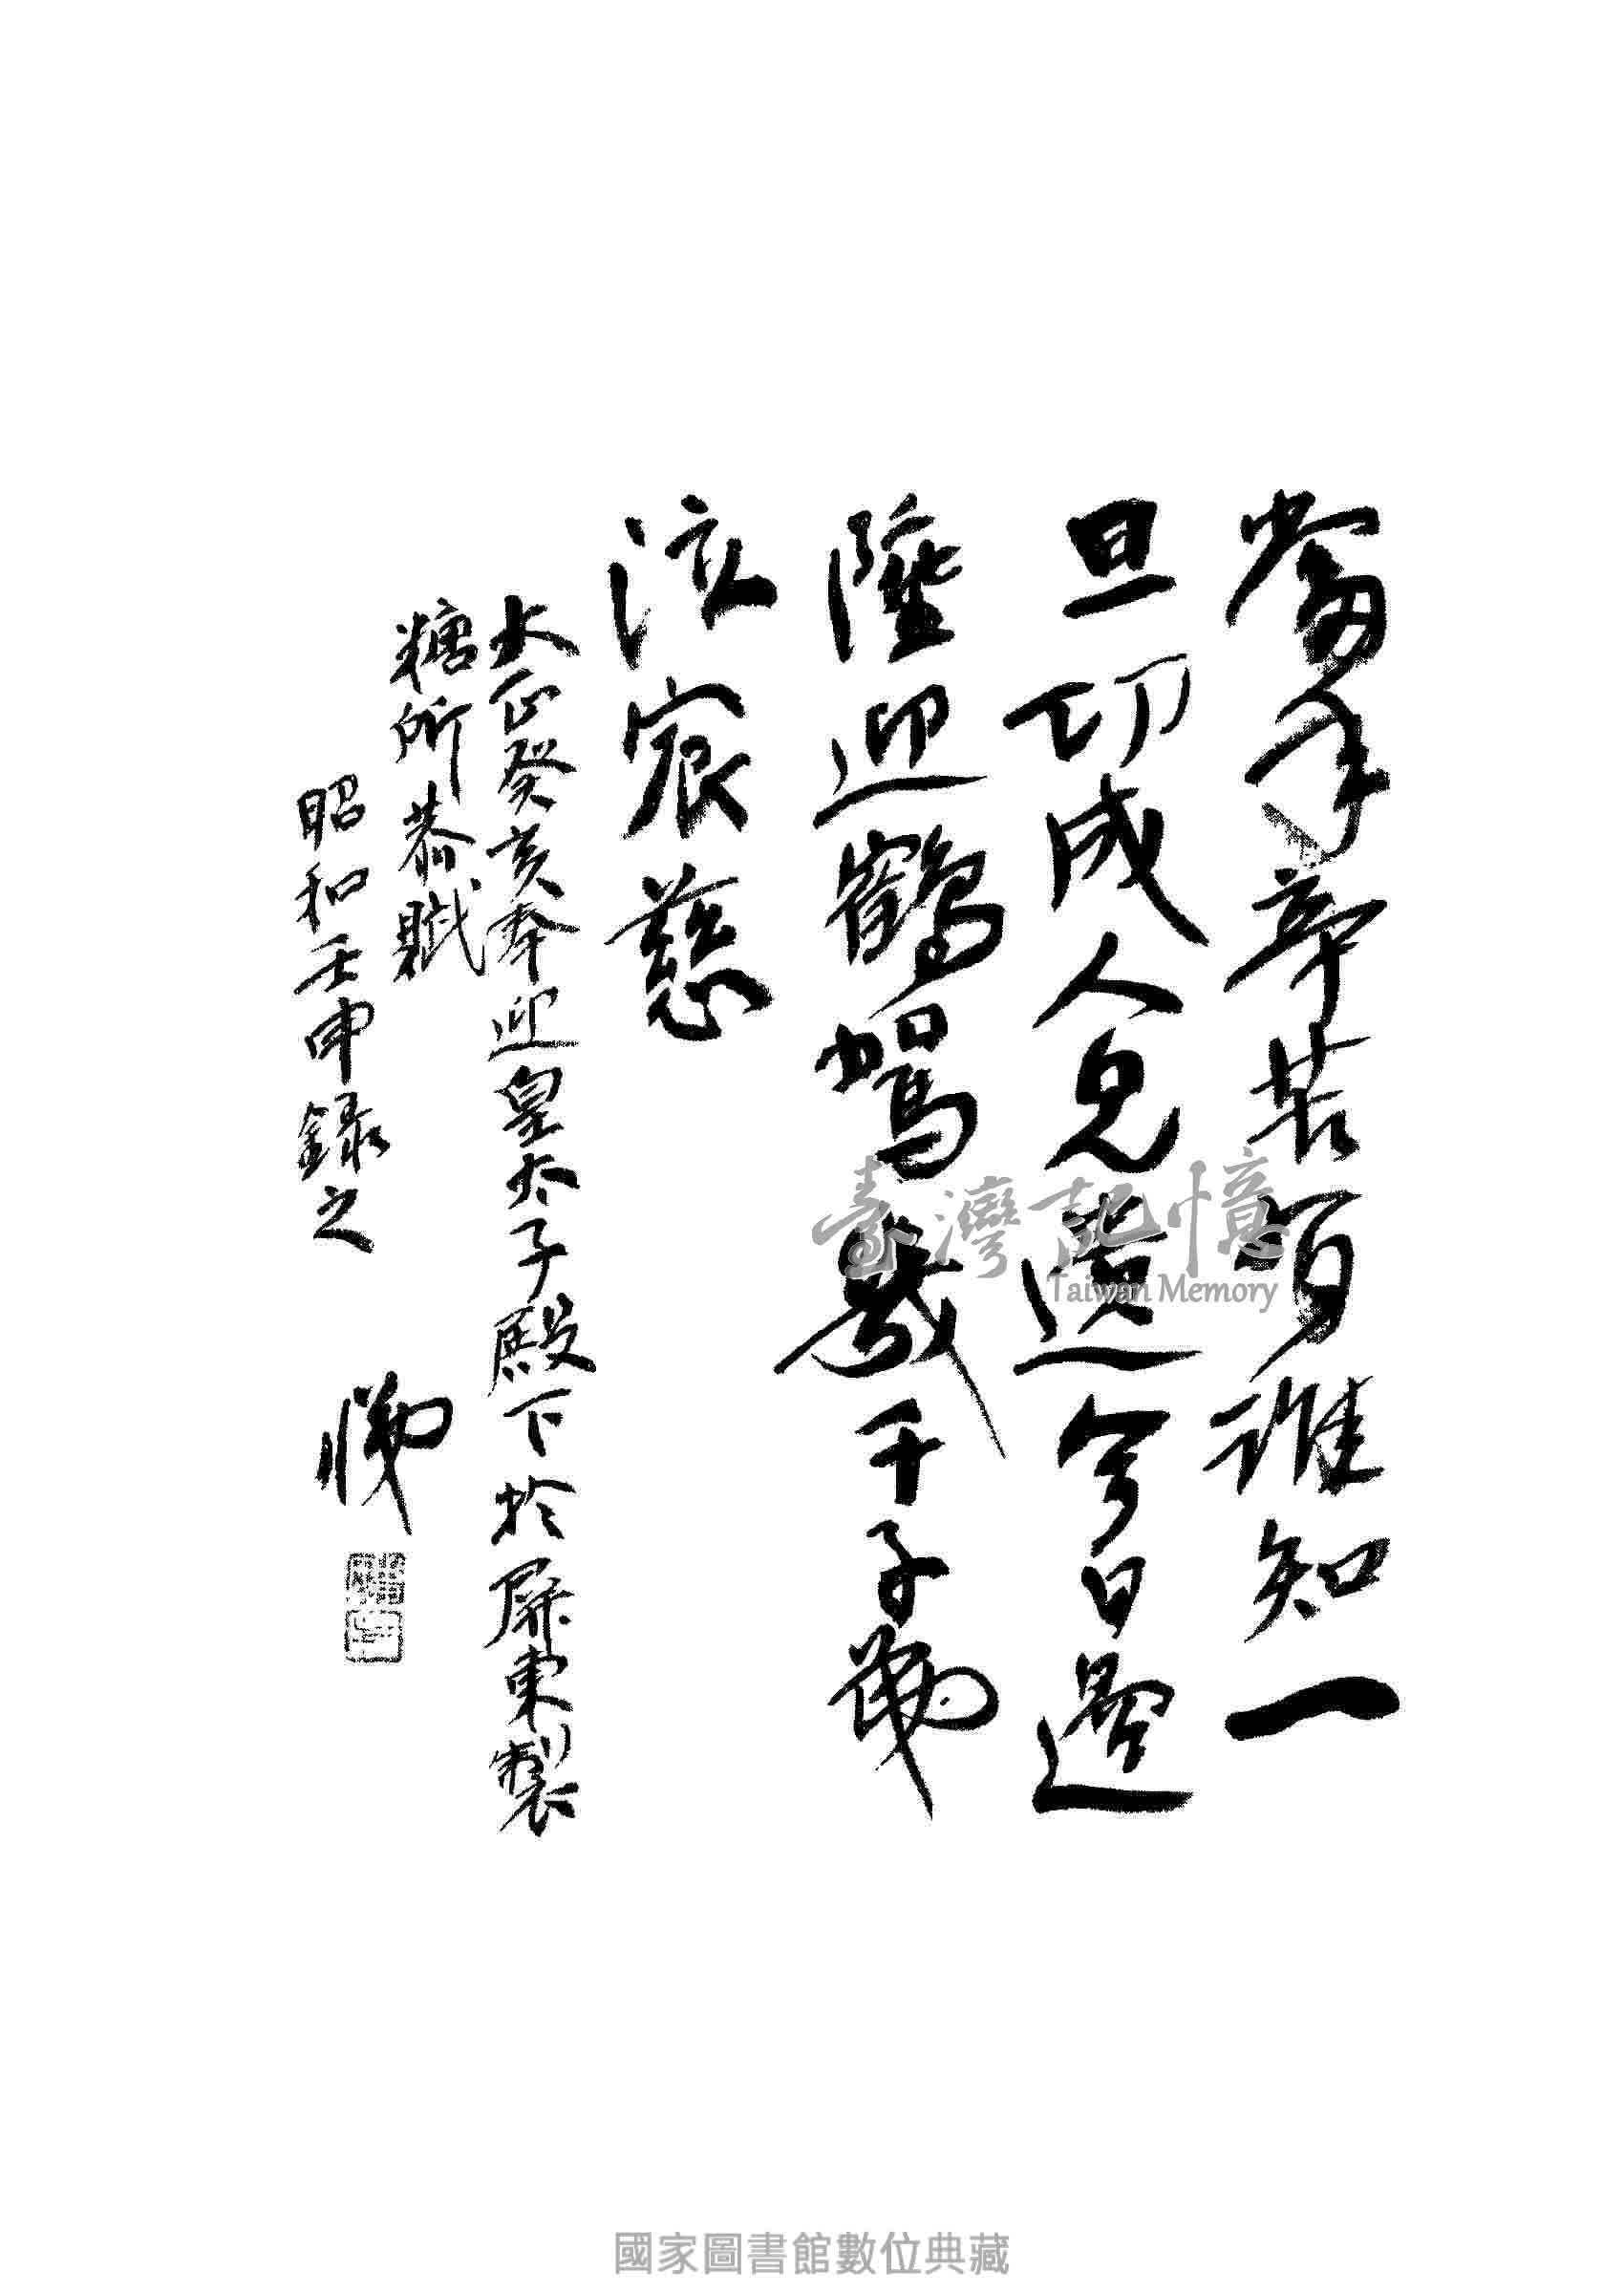 當年辛苦有誰知一
旦功成人見遺今日邊
陲迎鶴駕幾千子弟
泣宸慈
大正癸亥奉迎皇太子殿下於屏東製
糖所恭賦
昭和壬申錄之 悌
臺灣記憶
Taiwan Memory
國家圖書館數位典藏